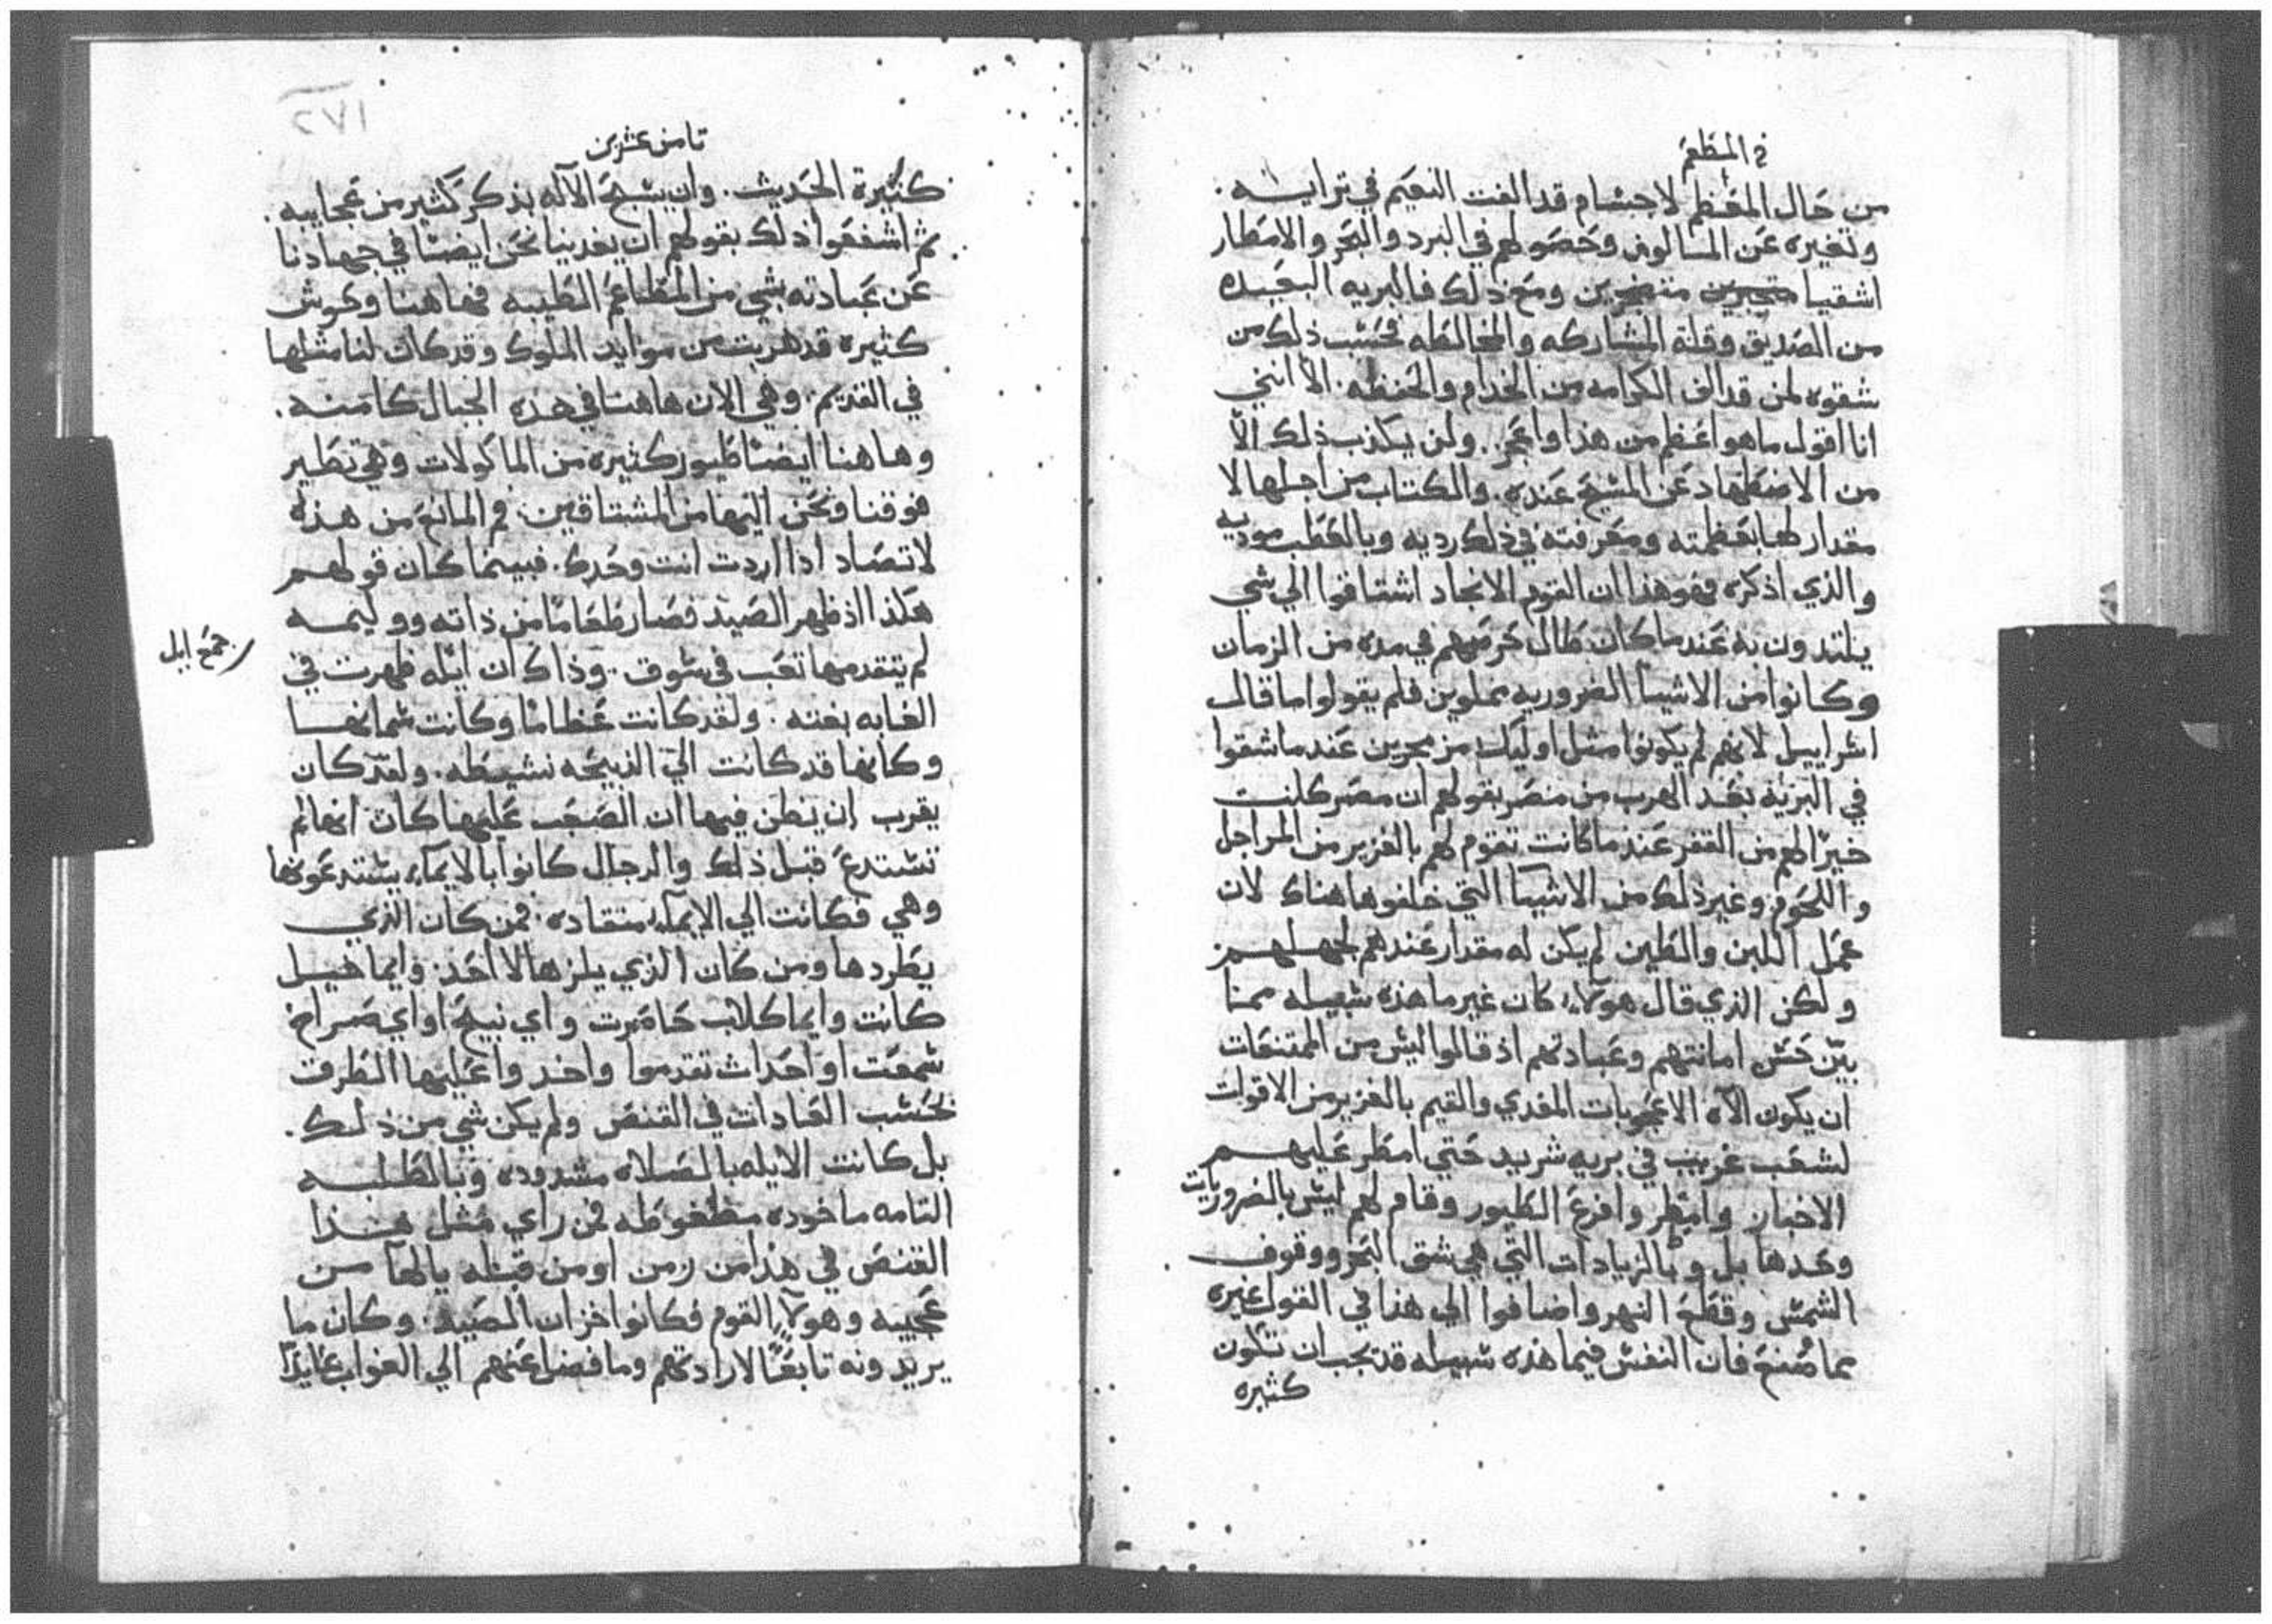 من حال المعظم لاجسام قد الفت النعيم في تراييه.
وتغيره عن المالوف وحصولهم في البرد والبحر والامطار
اشقيا متحيرين ومع ذلك فالبريه البعيده
من الصديق وقلة المشاركه والمخالطه فحسب ذلك من
شقوه لمن قد الف الكرامه من الخدام والحفظه. الا انني
انا اقول ما هو اعظم من هذا واعجز. ولن يكذب ذلك الا
من الاضطهاد عن المسيح عنده. والكتاب من اجلها لا
مقدار لها بعظمته ومعرفته في ذلك رديه وبالعطب موديه
والذي اذكره فهو هذا ان القوم الانجاد اشتاقوا الي شي
يلتدون به عند ما كان طال كرههم في مده من الزمان
وكانوا من الاشيا الضروريه مملوين فلم يقولوا ما قال
اسراييل لانهم لم يكونوا مثل اوليك مزمجرين عند ما شقوا
في البريه بعد الهرب من مصر بقولهم ان مصر كانت
خيرا لهم من القفر عند ما كانت تقوم لهم بالغزير من المراجل
واللحوم وغير ذلك من الاشيا التي خلفوها هناك لان
عمل اللبن والطين لم يكن له مقدار عندهم لجهلهم
ولكن الذي قال هولاء كان غير ما هذه سبيله مما
بين حسن امانتهم وعبادتهم اذ قالوا ليس من الممتنعات
ان يكون الاه الاعجوبات المغدي والقيم بالغزير من الاقوات
لشعب غريب في بريه شريد حتي امطر عليهم
الاخباز وامطر وافرغ الطيور وقام لهم ليس بالضروريات
وحدها بل وبالزيادات التي هي شق البحر ووقوف
الشمس وقطع النهر واضافوا الي هذا في القول غيره
مما صنع فان النفس فيما هذه سبيله قد يجب ان تكون
كثيره
ثامن عشرين
كثيرة الحديث. وان يسبح الاله بذكر كثير من عجايبه.
ثم اشفعوا ذلك بقولهم ان يغدينا نحن ايضا في جهادنا
عن عبادته بشي من المطاعم الطيبه فهاهنا وحوش
كثيره قد هربت من موايد الملوك وقد كان لنا مثلها
في القديم. وهي الان هاهنا في هذه الجبال كامنه.
وهاهنا ايضا طيور كثيره من الماكولات وهي تطير
فوقنا ونحن اليها من المشتاقين فم المانع من هذه
لا تصاد اذا اردت انت وحدك. فبينما كان قولهم
هكذا اذ ظهر الصيد فصار طعاما من ذاته ووليمه
لم يتقدمها تعب في سوق. وذاك ان ايله ظهرت في
جمع ايل
الغابه بغته. ولقد كانت عظاما وكانت سمانها
وكانها قد كانت الي الذبيحه نشيطه. ولقد كان
يقرب ان يظن فيها ان الصعب عليها كان انها لم
تستدع قبل ذلك والرجال كانوا بالايماء يستدعونها
وهي فكانت الي الايماء منقاده. فمن كان الذي
يطردها ومن كان الذي يلزها لا احد. وايما خيل
كانت وايما كلاب حاضرت واي نبيح او اي صراخ
سمعت او احداث تقدموا واخدوا عليها الطرق
بحسب العادات في القنص ولم يكن شي من ذلك.
بل كانت الايله بالصلاه مشدوده وبالطلبه
التامه ماخوده مظغوطه فمن راي مثل هذا
القنص في هذا من زمن او من قبله يالها من
عجيبه وهولاء القوم فكانوا خزان الصيد. وكان ما
يريدونه تابعا لارادتهم وما فضل عنهم الي الغواب عايدا